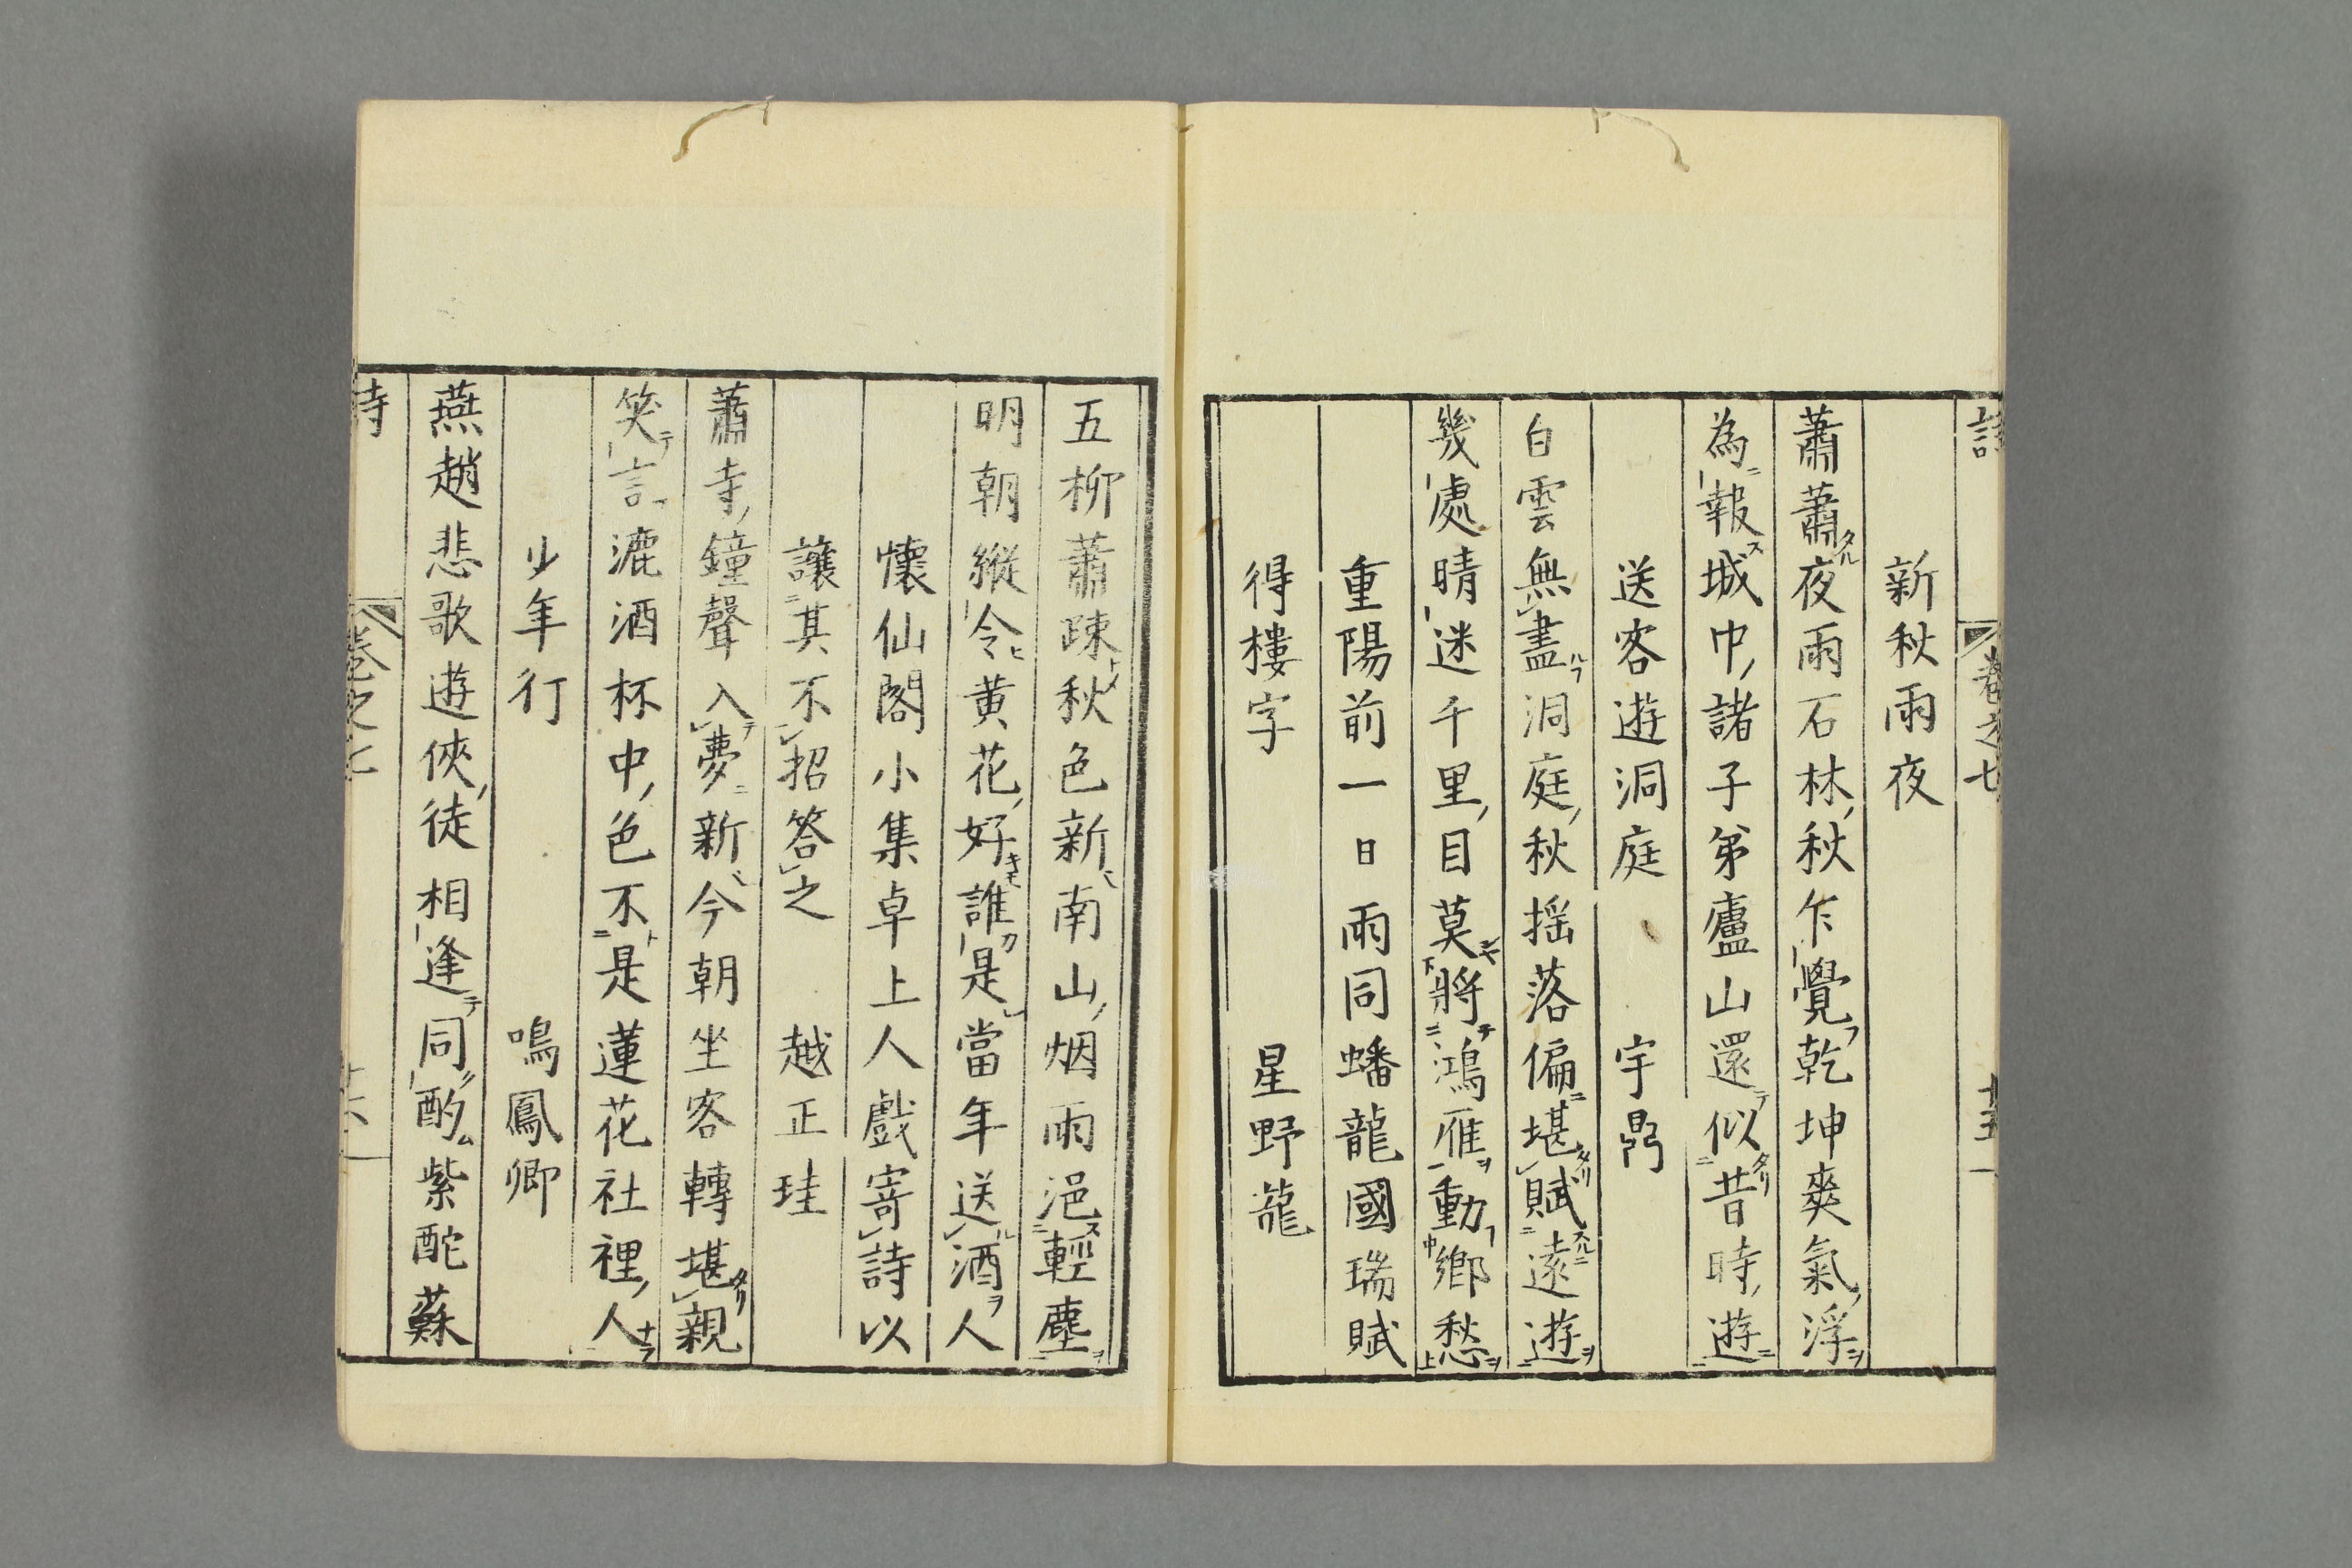 卷之七
新秋雨夜
蕭蕭夜雨石林秋乍覺乾坤爽氣浮
為報城中諸子弟廬山還似昔時遊
送客遊洞庭 宇鼎
白雲無盡洞庭秋搖落偏堪賦遠遊
幾處晴迷千里目莫將鴻雁動鄉愁
重陽前一日雨同蟠龍國瑞賦
得樓字 星野蘢
五柳蕭踈秋色新南山烟雨浥輕塵
明朝縱令黄花好誰是當年送酒人
懷仙閣小集卓上人戲寄詩以
讓其不招答之 越正珪
蕭寺鐘聲入夢新今朝坐客轉堪親
笑言漉酒杯中色不是蓮花社裡人
少年行 鳴鳳卿
燕趙悲歌遊俠徒相逢同酌紫酡蘇
卷之七